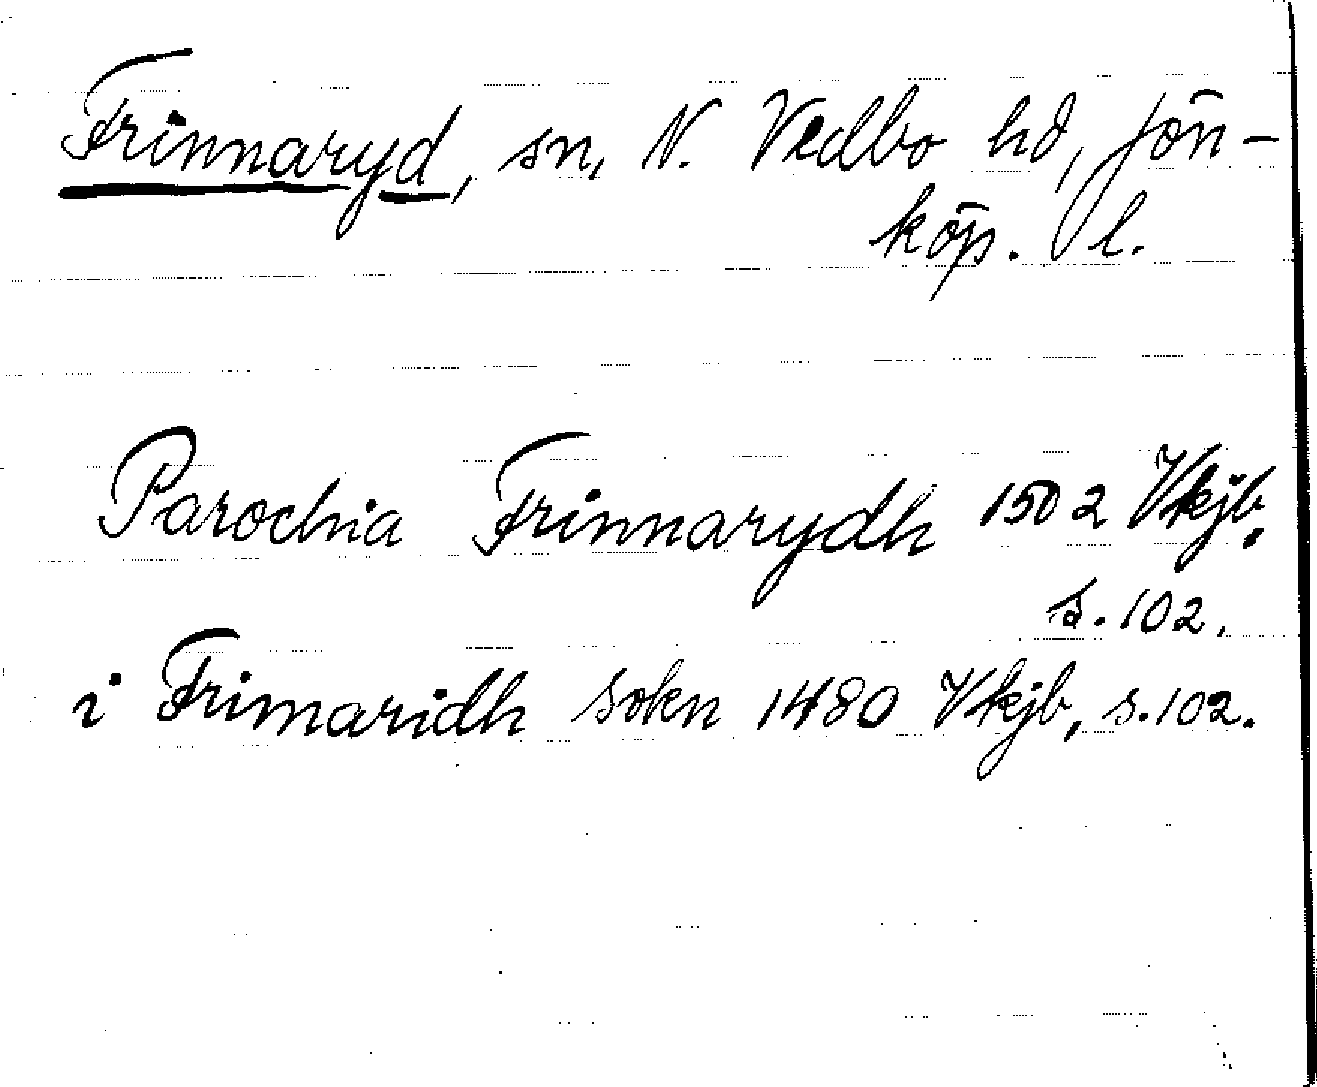 Frinnaryd, sn, N. Vedbo hd, Jön-
köp. l.
Parochia Frinnarydh 1502 Vkjb,
s. 102.
i Frimaridh sokn 1480 Vkjb, s. 102.